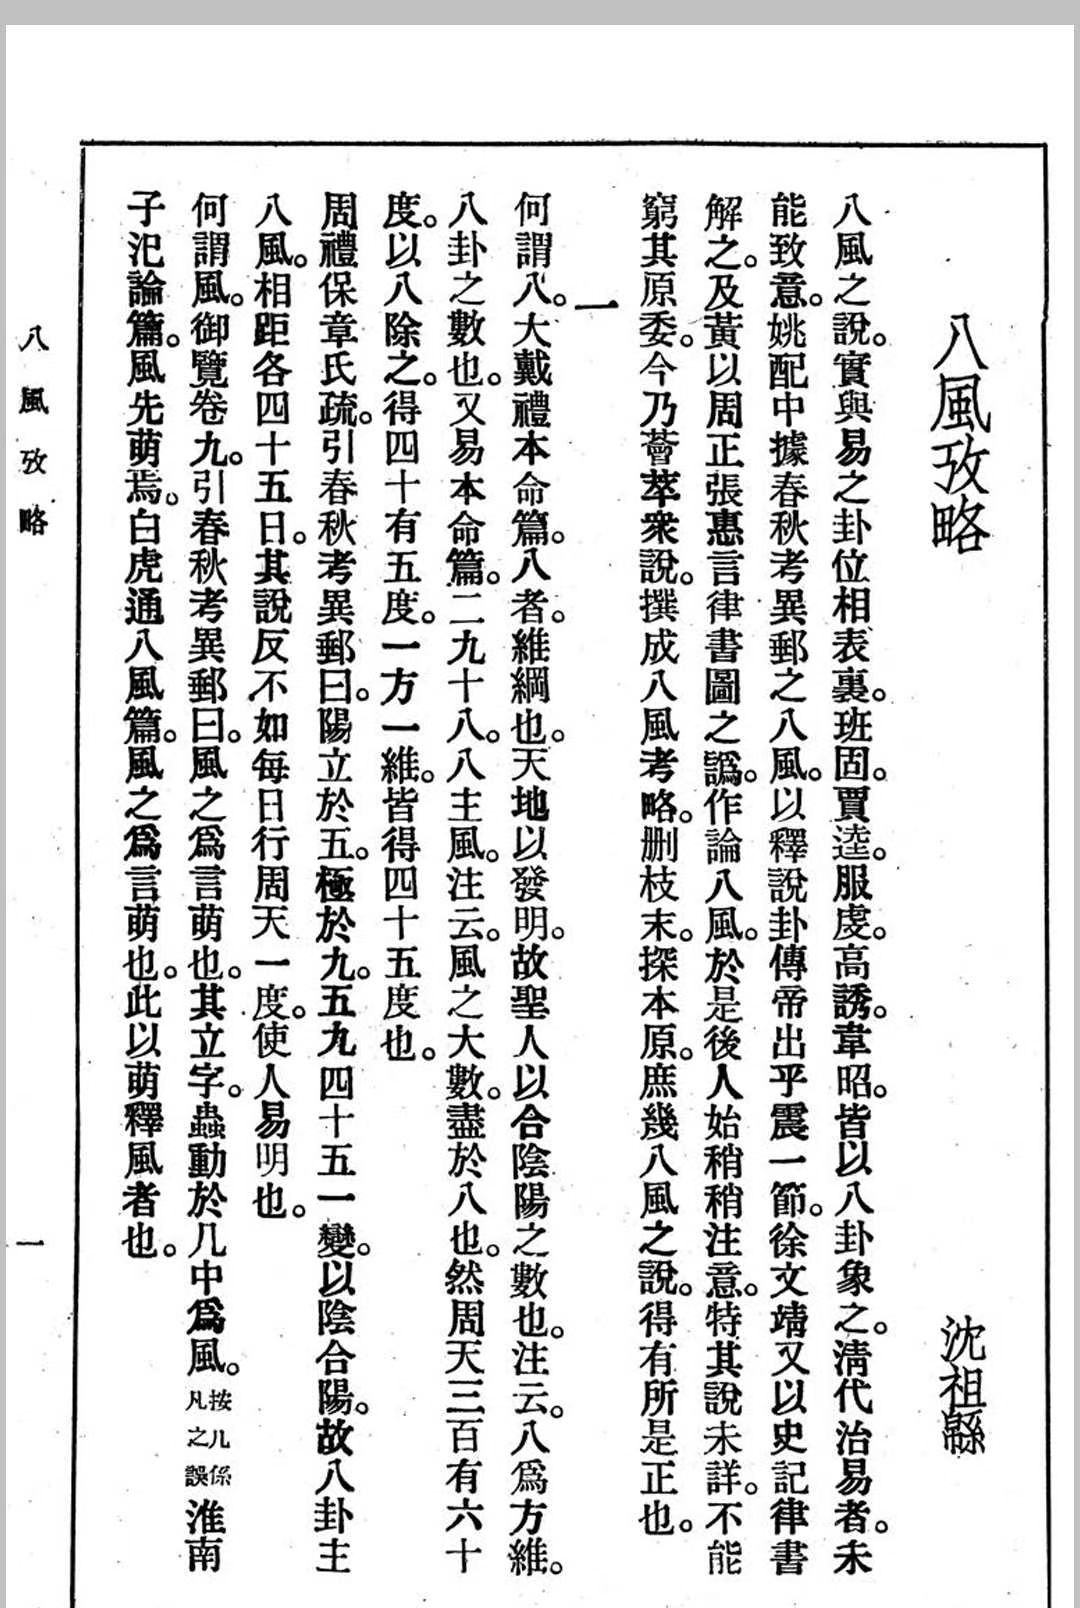 八風攷略
沈祖緜
八風之說。實與易之卦位相表裏。班固。賈逵。服虔。高誘。韋昭。皆以八卦象之。淸代治易者。未
能致意。姚配中據春秋考異郵之八風。以釋說卦傳帝出乎震一節。徐文靖又以史記律書
解之。及黃以周正張惠言律書圖之譌。作論八風。於是後人始稍稍注意。特其說未詳。不能
窮其原委。今乃薈萃衆說。撰成八風考略。删枝末。探本原。庶幾八風之說。得有所是正也。
一
何謂八。大戴禮本命篇。八者。維綱也。天地以發明。故聖人以合陰陽之數也。注云。八爲方維。
八卦之數也。又易本命篇。二九十八。八主風。注云。風之大數。盡於八也。然周天三百有六十
度。以八除之。得四十有五度。一方一維。皆得四十五度也。
周禮保章氏疏。引春秋考異郵曰。陽立於五。極於九。五九四十五一變。以陰合陽。故八卦主
八風。相距各四十五日。其說反不如每日行周天一度。使人易明也。
何謂風。御覽卷九。引春秋考異郵曰。風之爲言萌也。其立字。蟲動於几中爲風。按几係凡之誤淮南
子氾論篇。風先萌焉。白虎通八風篇。風之爲言萌也。此以萌釋風者也。
八風攷略
一